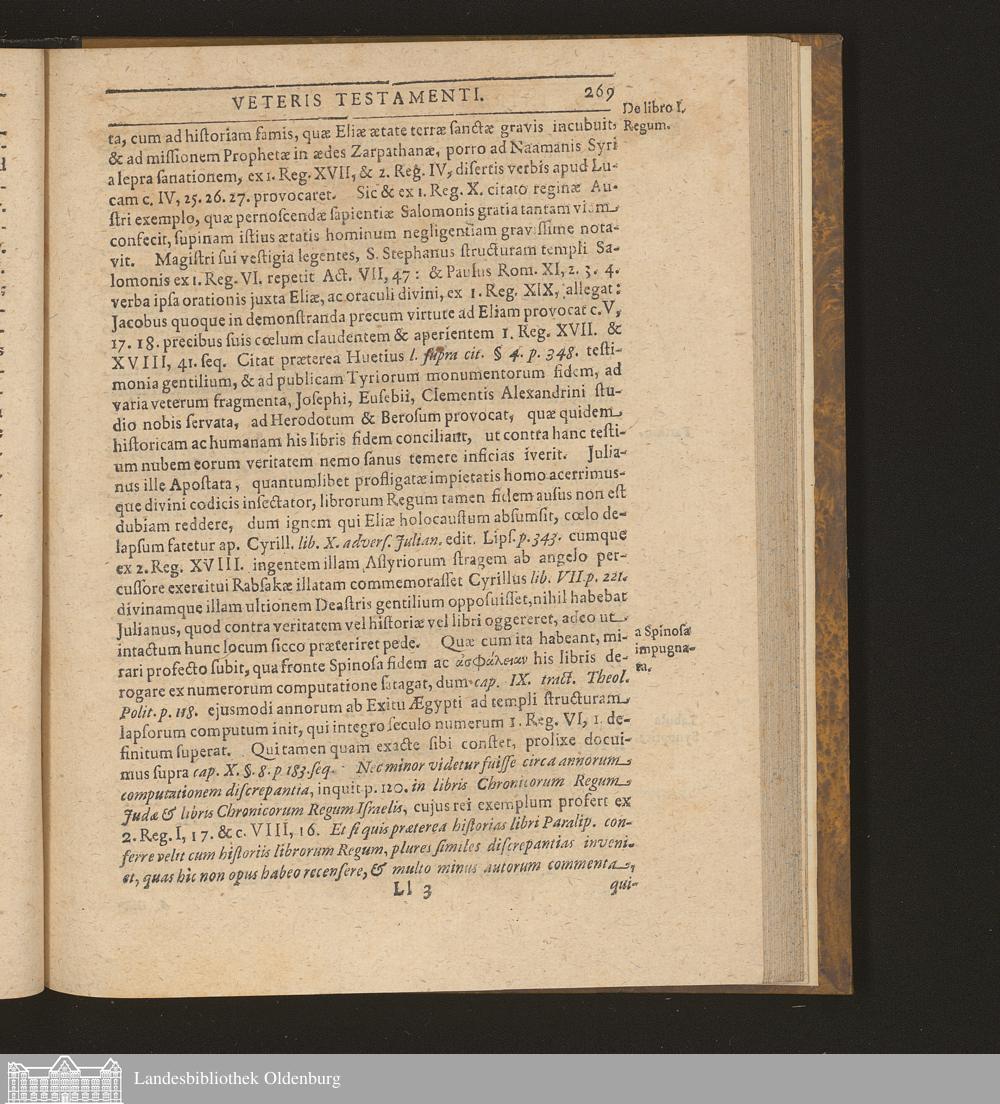 VETERIS TESTAMENTI. 269
De libro I.
Regum.
ta, cum ad hiſtoriam famis, quæ Eliæ ætate terræ ſanctæ gravis incubuit,
& ad miſſionem Prophetæ in ædes Zarpathanæ, porro ad Naamanis Syri
a lepra ſanationem, ex 1. Reg. XVII, & 2. Reg. IV, diſertis verbis apud Lu-
cam c. IV, 25. 26. 27. provocaret. Sic & ex 1. Reg. X. citato reginæ Au-
ſtri exemplo, quæ pernoſcendæ ſapientiæ Salomonis gratia tantam viam
confecit, ſupinam iſtius ætatis hominum negligentiam graviſſime nota-
vit. Magiſtri ſui veſtigia legentes, S. Stephanus ſtructuram templi Sa-
lomonis ex 1. Reg. VI. repetit Act. VII, 47: & Paulus Rom. XI, 2. 3. 4.
verba ipſa orationis juxta Eliæ, ac oraculi divini, ex 1. Reg. XIX, allegat:
Jacobus quoque in demonſtranda precum virtute ad Eliam provocat c. V,
17. 18. precibus ſuis cœlum claudentem & aperientem 1. Reg. XVII. &
XVIII, 41. ſeq. Citat præterea Huetius l. ſupra cit. § 4. p. 348. teſti-
monia gentilium, & ad publicam Tyriorum monumentorum fidem, ad
varia veterum fragmenta, Joſephi, Euſebii, Clementis Alexandrini ſtu-
dio nobis ſervata, ad Herodotum & Beroſum provocat, quæ quidem
hiſtoricam ac humanam his libris fidem conciliant, ut contra hanc teſti-
um nubem eorum veritatem nemo ſanus temere inficias iverit. Julia-
nus ille Apoſtata, quantumlibet profligatæ impietatis homo acerrimus-
que divini codicis inſectator, librorum Regum tamen fidem auſus non eſt
dubiam reddere, dum ignem qui Eliæ holocauſtum abſumſit, cœlo de-
lapſum fatetur ap. Cyrill. lib. X. adverſ. Julian. edit. Lipſ. p. 343. cumque
ex 2. Reg. XVIII. ingentem illam Aſſyriorum ſtragem ab angelo per-
cuſſore exercitui Rabſakæ illatam commemoraſſet Cyrillus lib. VII. p. 221.
divinamque illam ultionem Deaſtris gentilium oppoſuiſſet, nihil habebat
Julianus, quod contra veritatem vel hiſtoriæ vel libri oggereret, adeo ut
intactum hunc locum ſicco præteriret pede. Quæ cum ita habeant, mi-
rari profecto ſubit, qua fronte Spinoſa fidem ac ἀσφάλειαν his libris de-
rogare ex numerorum computatione ſatagat, dum cap. IX. tract. Theol.
Polit. p. 118. ejusmodi annorum ab Exitu Ægypti ad templi ſtructuram
lapſorum computum init, qui integro ſeculo numerum 1. Reg. VI, 1. de-
finitum ſuperat. Qui tamen quam exacte ſibi conſtet, prolixe docui-
mus ſupra cap. X. §. 8. p 183. ſeq. Nec minor videtur fuiſſe circa annorum
computationem diſcrepantia, inquit p. 120. in libris Chronicorum Regum
Judæ & libris Chronicorum Regum Iſraelis, cujus rei exemplum profert ex
2. Reg. I, 17. & c. VIII, 16. Et ſi quis præterea hiſtorias libri Paralip. con-
ferre velit cum hiſtoriis librorum Regum, plures ſimiles diſcrepantias inveni-
et, quas hic non opus habeo recenſere, & multo minus autorum commenta,
a Spinoſa
impugna-
ta.
Ll 3 qui-
Landesbibliothek Oldenburg